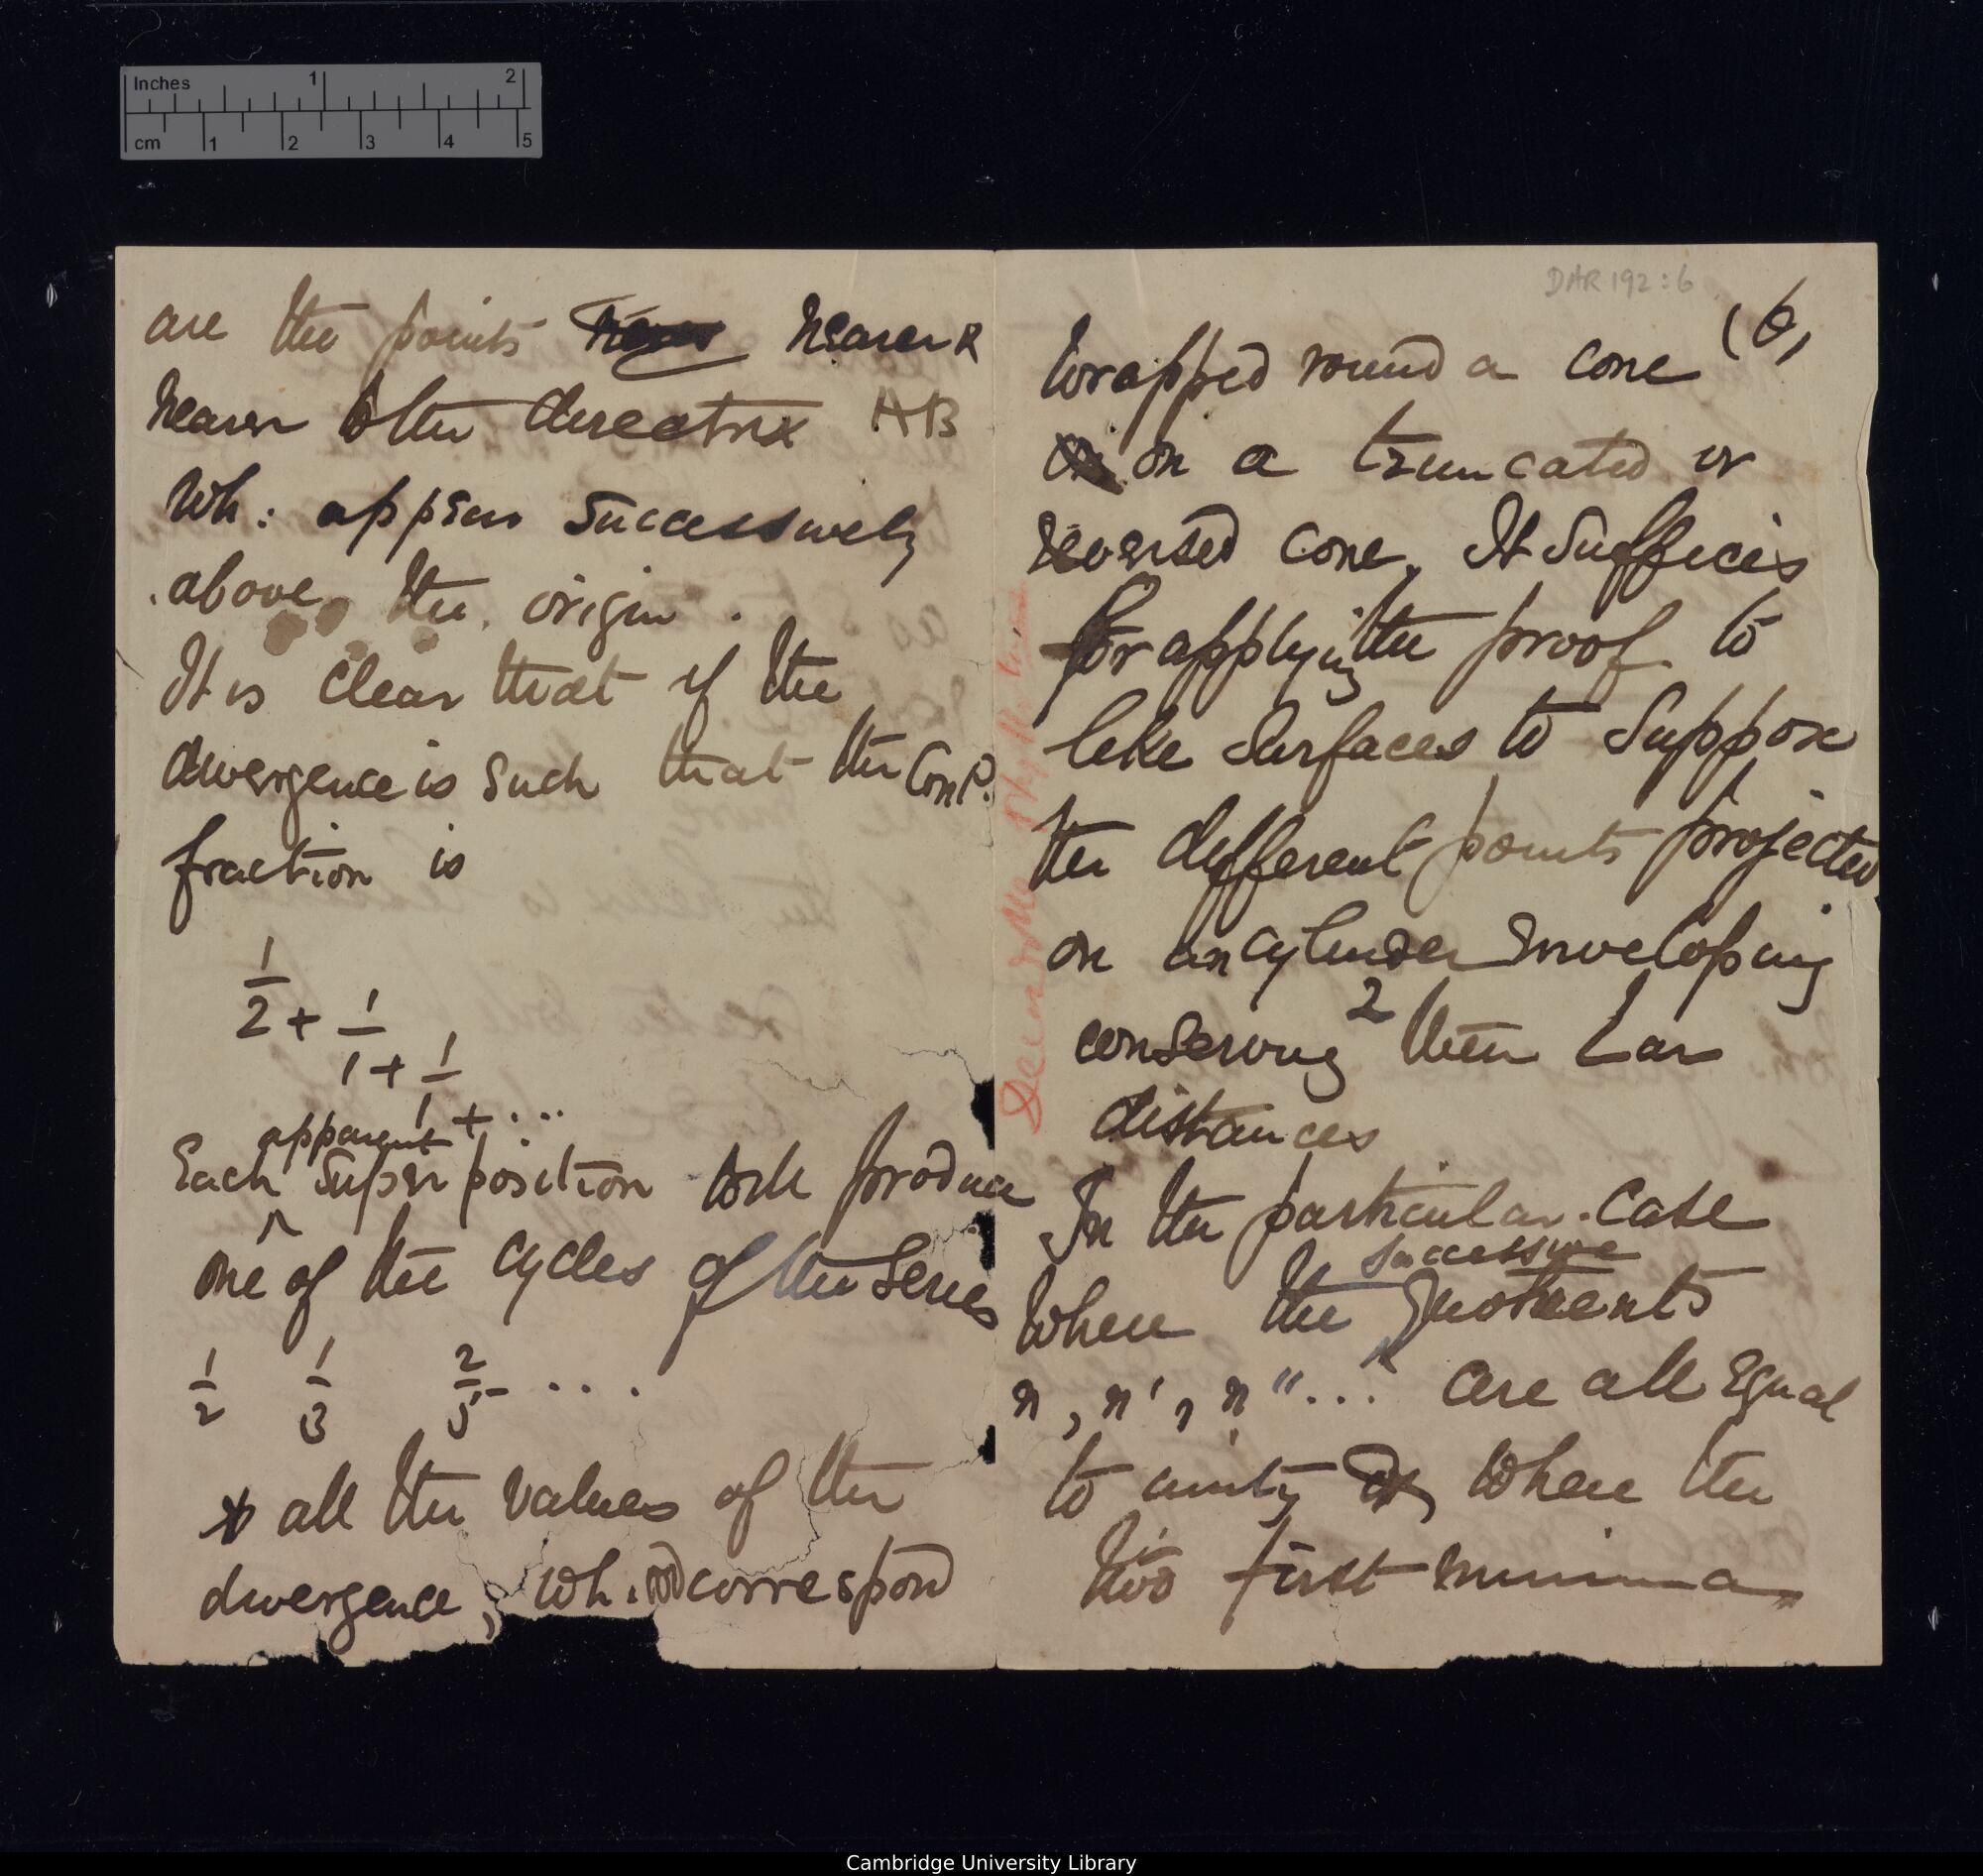 Inches 1 2
cm 1 2 3 4 5
are the points nearer &
nearer to the directrix AB
wh: appear successively
above the origin.
It is clear that if the
divergence is such that the Con^d.
fraction is
1
2 + 1
1 + 1
1 + ...
apparent
Each ^ superposition will produce
one of the cycles of the series
1/2 1/3 2/5 ....
& all the values of the
divergence, wh. wd correspond
DAR 192:6
(6)
wrapped round a cone
or on a truncated or
reversed cone. It suffices
for applying the proof to
like surfaces to suppose
the different points projected
on an cylinder enveloping
conserving 2 their
distances
In the particular case
successive
where the ^ quotients
n, n', n"... are all equal
to unity & where the
two first minima
Cambridge University Library